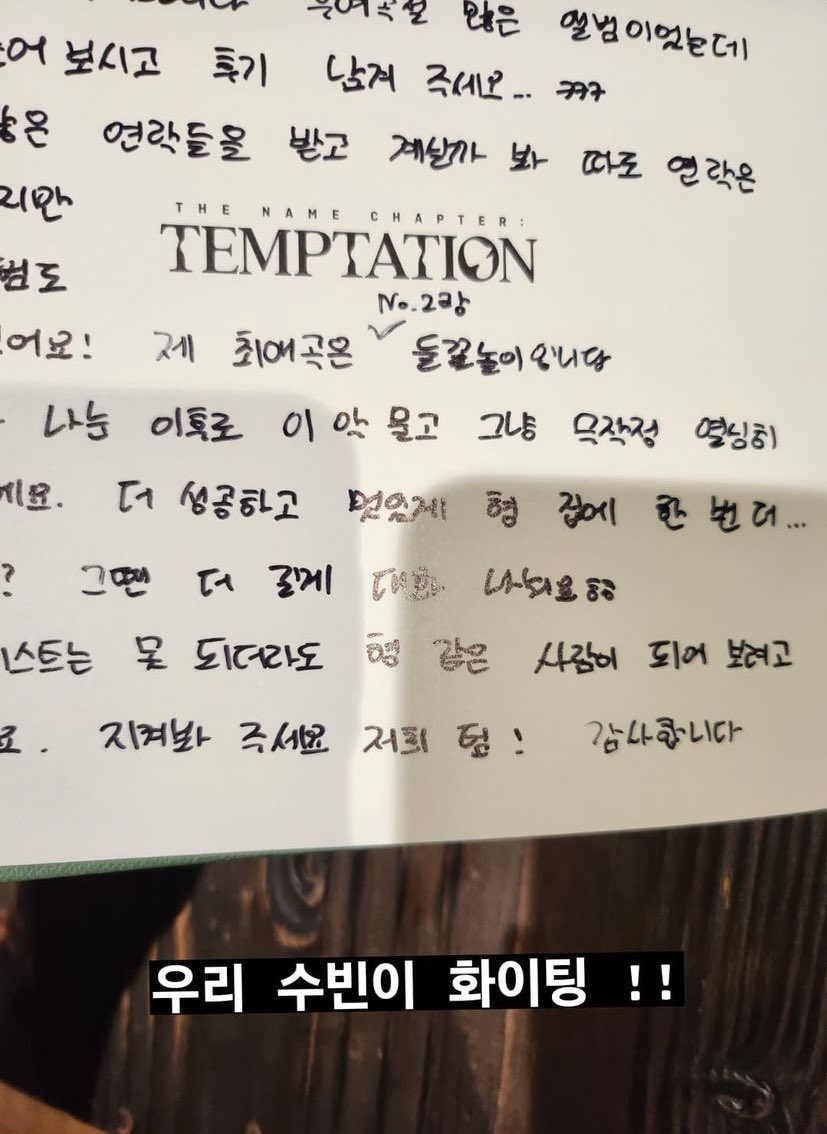 많은 앨범이었는데
보시고 후기 남겨 주세요... ㅋㅋㅋ
연락들을 받고 계실까 봐 따로 연락은
지만
THE NAME CHAPTER:
TEMPTATION
범도
No.2랑
어요! 제 최애곡은 ✓ 들꽃놀이입니다
나눈 이후로 이 악 물고 그냥 무작정 열심히
에요. 더 성공하고 멋있게 형 집에 한 번 더...
? 그땐 더 길게 대화 나눠요 형
스트는 못 되더라도 형 같은 사람이 되어 보려고
요. 지켜봐 주세요 저희 텀! 감사합니다
우리 수빈이 화이팅 !!